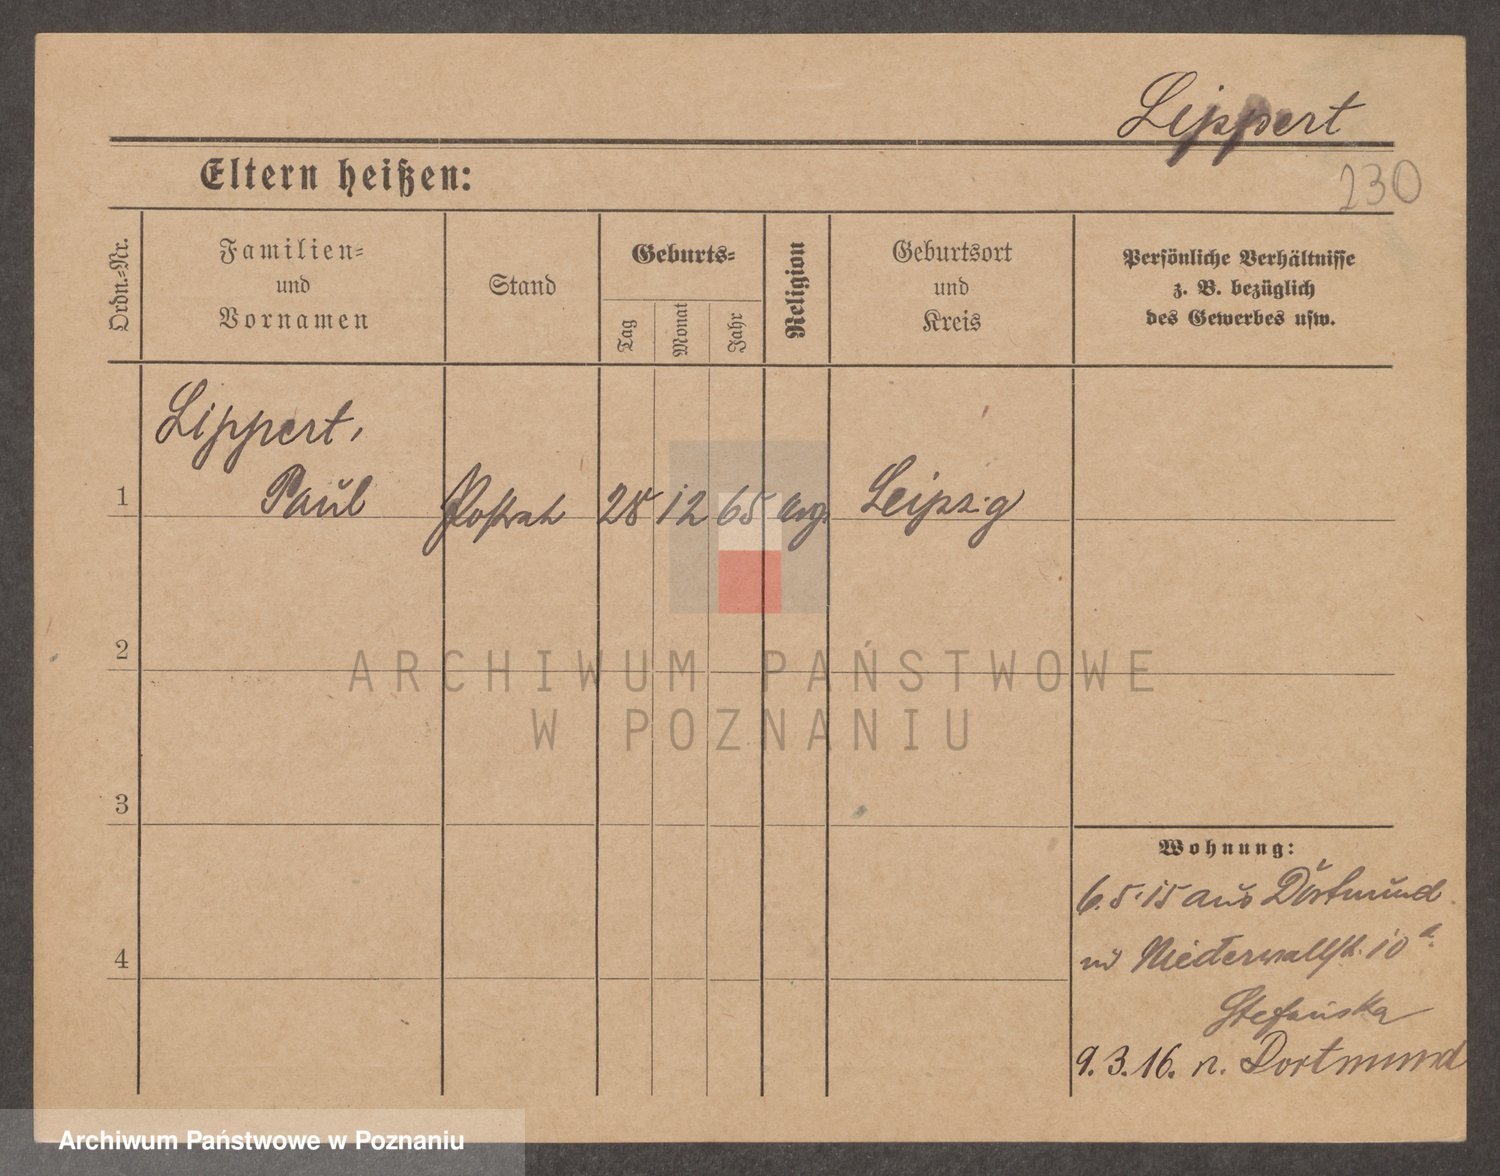 Lippert
230
Eltern heißen:
Ordn.-Nr.
Familien-
und
Vornamen
Stand
Geburts-
Tag
Monat
Jahr
Religion
Geburtsort
und
Kreis
Persönliche Verhältnisse
z. B. bezüglich
des Gewerbes usw.
Lippert,
1 Paul Postrat 28 12 65 evg. Leipzig
2
ARCHIWUM PAŃSTWOWE
W POZNANIU
3
Wohnung:
6.5.15 aus Dortmund
Niederwallstr. 10a.
4
Stefańska
9.3.16. n. Dortmund
Archiwum Państwowe w Poznaniu